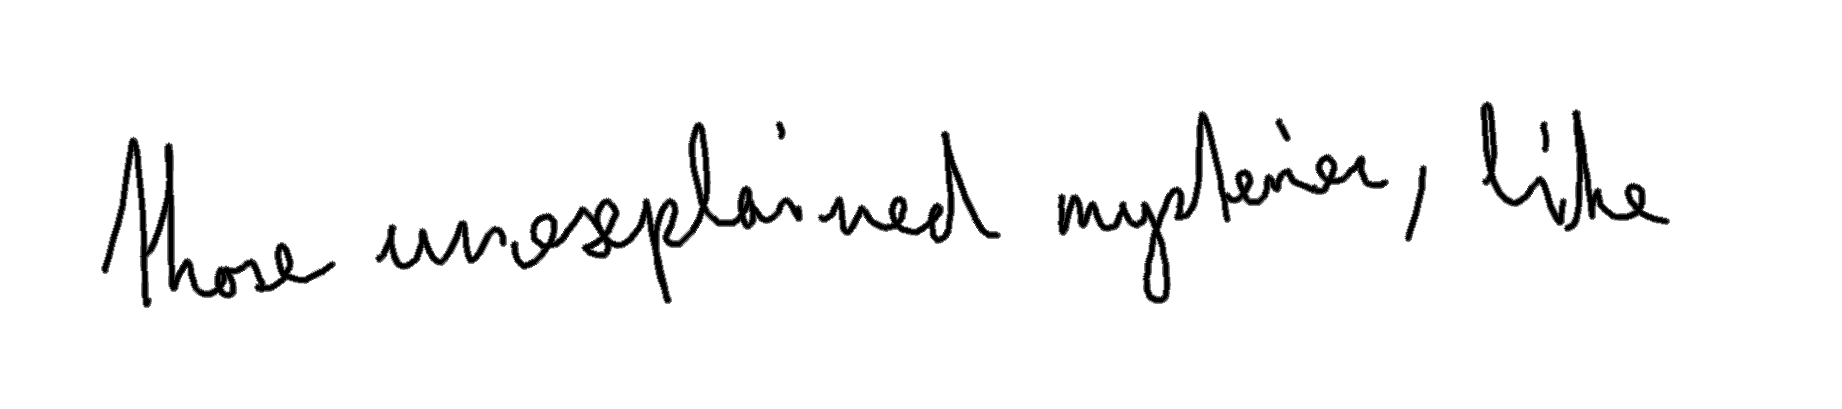 those unexplained mysteries, like